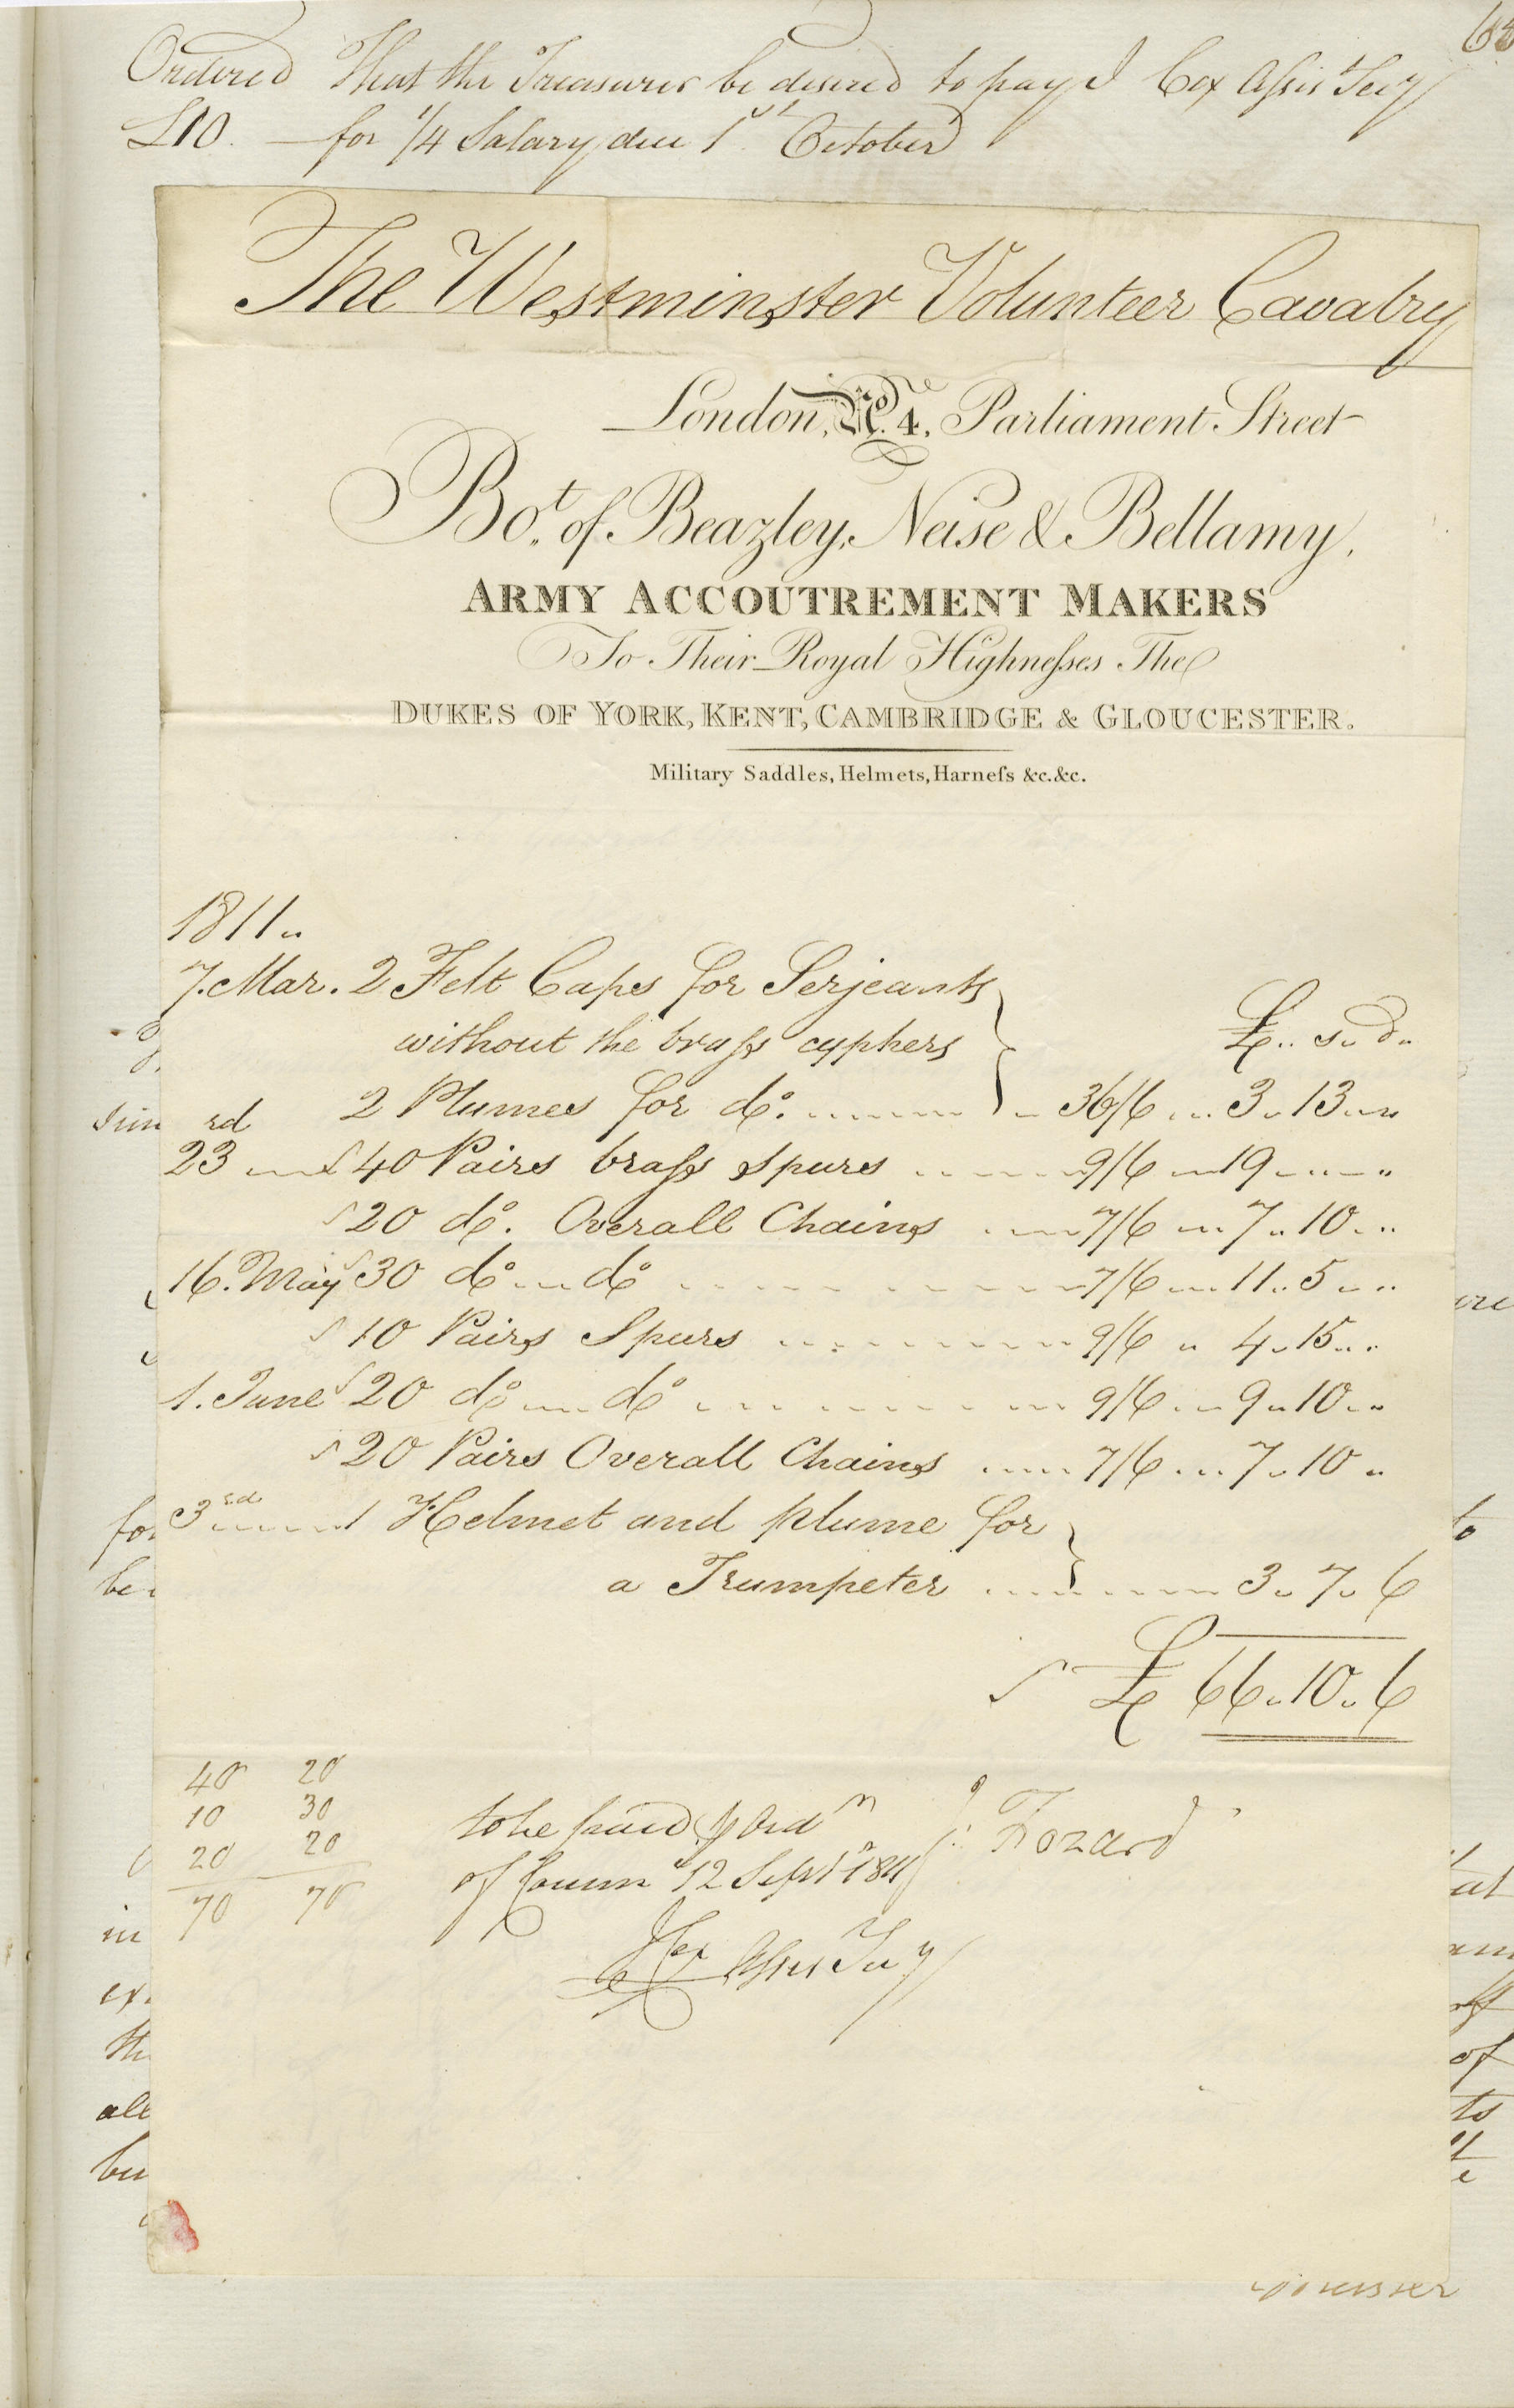 Ordered That the Treasurer be desired to pay J Cox Assis.t Secy
£10. — for 1/4 Salary due 1st October
The Westminster Volunteer Cavalry
London, No. 4, Parliament Street
Bo.t of Beazley, Neise & Bellamy,
ARMY ACCOUTREMENT MAKERS
To Their Royal Highneſses The
DUKES OF YORK, KENT, CAMBRIDGE & GLOUCESTER.
Military Saddles, Helmets, Harneſs &c. &c.
1811
7. Mar. 2 Felt Caps for Serjeants
without the braſs cyphers £ s d
2 Plumes for do. 36/6 3 13 "
23rd 40 Pairs braſs Spurs 9/6 19 " "
20 do. Overall Chains 7/6 7 10 "
16. May 30 do do 7/6 11 5 "
10 Pairs Spurs 9/6 4 15 "
1. June 20 do do 9/6 9 10 "
20 Pairs Overall Chains 7/6 7 10 "
3rd 1 Helmet and plume for
a Trumpeter 3 7 6
£ 66 10 6
40 20
10 30
20 20
70 70
to be paid p Ord.n J: Fozard
of Comm 12 Sept 1811
J Cox Assis Secy
for
be
in
the
all
but
to
of